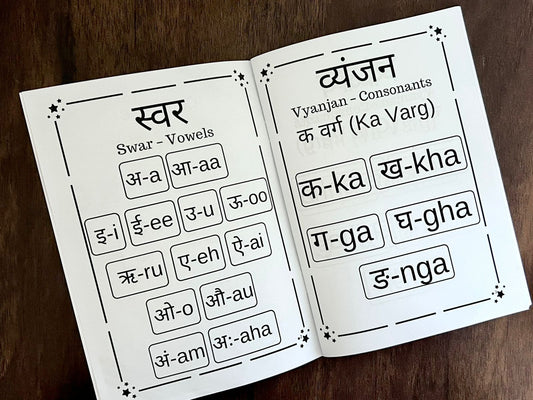 स्वर
Swar – Vowels
अ-a आ-aa
इ-i ई-ee उ-u ऊ-oo
ऋ-ru ए-eh ऐ-ai
ओ-o औ-au
अं-am अः-aha
व्यंजन
Vyanjan – Consonants
क वर्ग (Ka Varg)
क-ka ख-kha
ग-ga घ-gha
ङ-nga